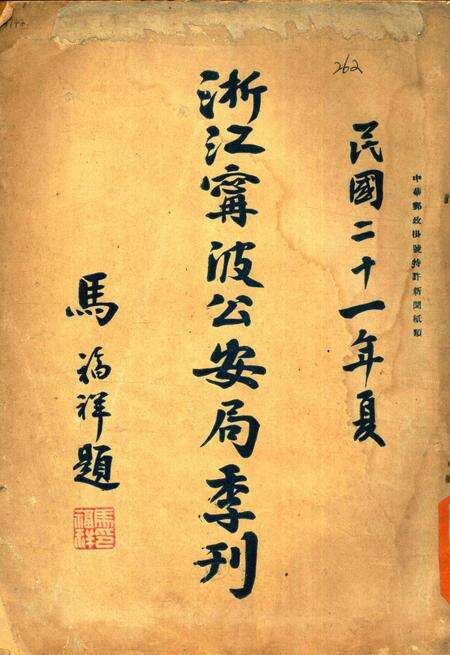 中華郵政掛號特許新聞紙類
民國二十一年夏
浙江甯波公安局季刊
馬福祥題
馬福祥印
262